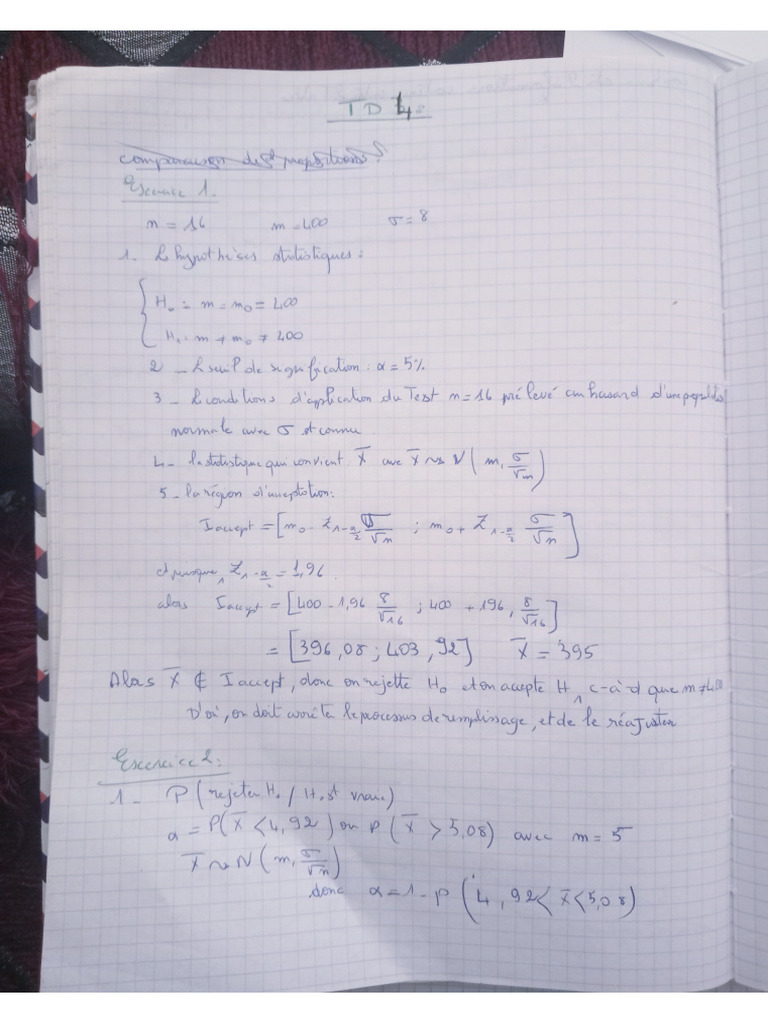 TD 4
comparaison de propositions
Exercice 1.
n = 16 m = 400 σ = 8
1. L hypothèses statistiques :
H₀ : m = m₀ = 400
H₁ : m ≠ m₀ ≠ 400
2 - L seuil de signification : α = 5%
3 - L conditions d'application du Test n = 16 prélevé au hasard d'une population
normale avec σ est connu
4 - la statistique qui convient : X̄ avec X̄ ~> N(m, σ/√n)
5 - la région d'acceptation :
I accept = [m₀ - Z₁₋α/2 σ/√n ; m₀ + Z₁₋α/2 σ/√n]
et puisque, Z₁₋α/2 = 1,96
alors I accept = [400 - 1,96 8/√16 ; 400 + 196, 8/√16]
= [396,08 ; 403,92] X̄ = 395
Alors X̄ ∉ I accept, donc on rejette H₀ et on accepte H₁ c-à-d que m ≠ 400
D'où, on doit arrête le processus de remplissage, et de le réajuster
Exercice 2 :
1 - P(rejeter H₀ / H₀ st vraie)
α = P(X̄ < 4,92) ou P(X̄ > 5,08) avec m = 5
X̄ ~> N(m, σ/√n)
donc α = 1 - P(4,92 < X̄ < 5,08)